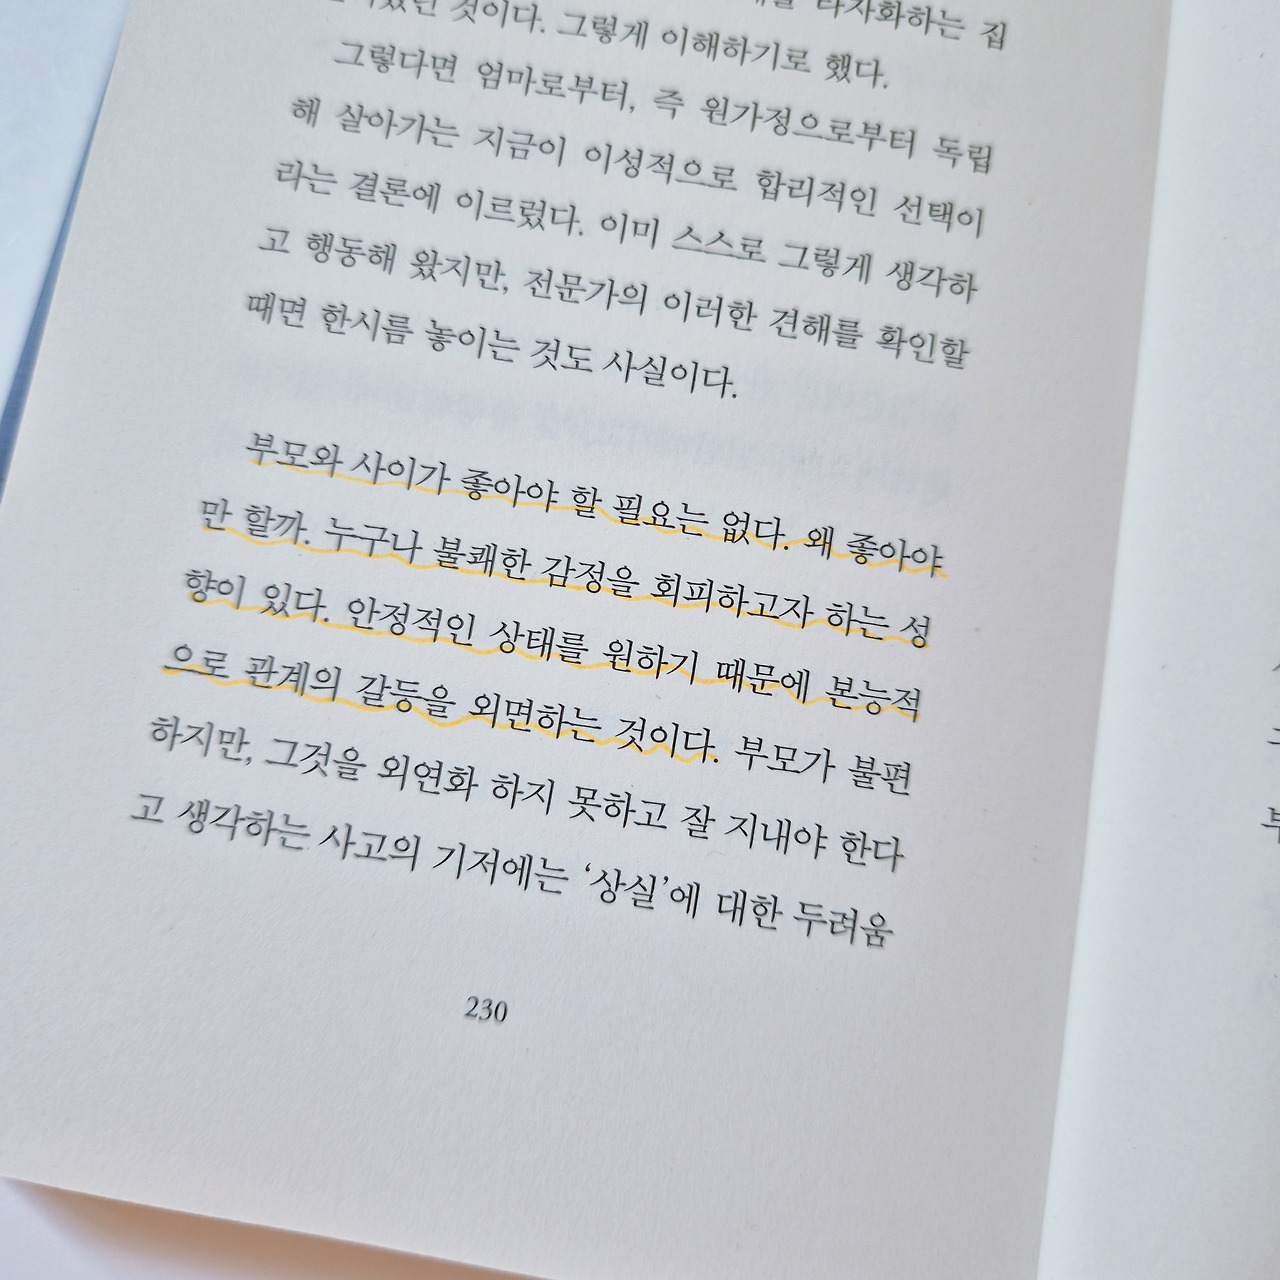 타자화하는 집
것이다. 그렇게 이해하기로 했다.
그렇다면 엄마로부터, 즉 원가정으로부터 독립
해 살아가는 지금이 이성적으로 합리적인 선택이
라는 결론에 이르렀다. 이미 스스로 그렇게 생각하
고 행동해 왔지만, 전문가의 이러한 견해를 확인할
때면 한시름 놓이는 것도 사실이다.
부모와 사이가 좋아야 할 필요는 없다. 왜 좋아야
만 할까. 누구나 불쾌한 감정을 회피하고자 하는 성
향이 있다. 안정적인 상태를 원하기 때문에 본능적
으로 관계의 갈등을 외면하는 것이다. 부모가 불편
하지만, 그것을 외연화 하지 못하고 잘 지내야 한다
고 생각하는 사고의 기저에는 ‘상실’에 대한 두려움
230